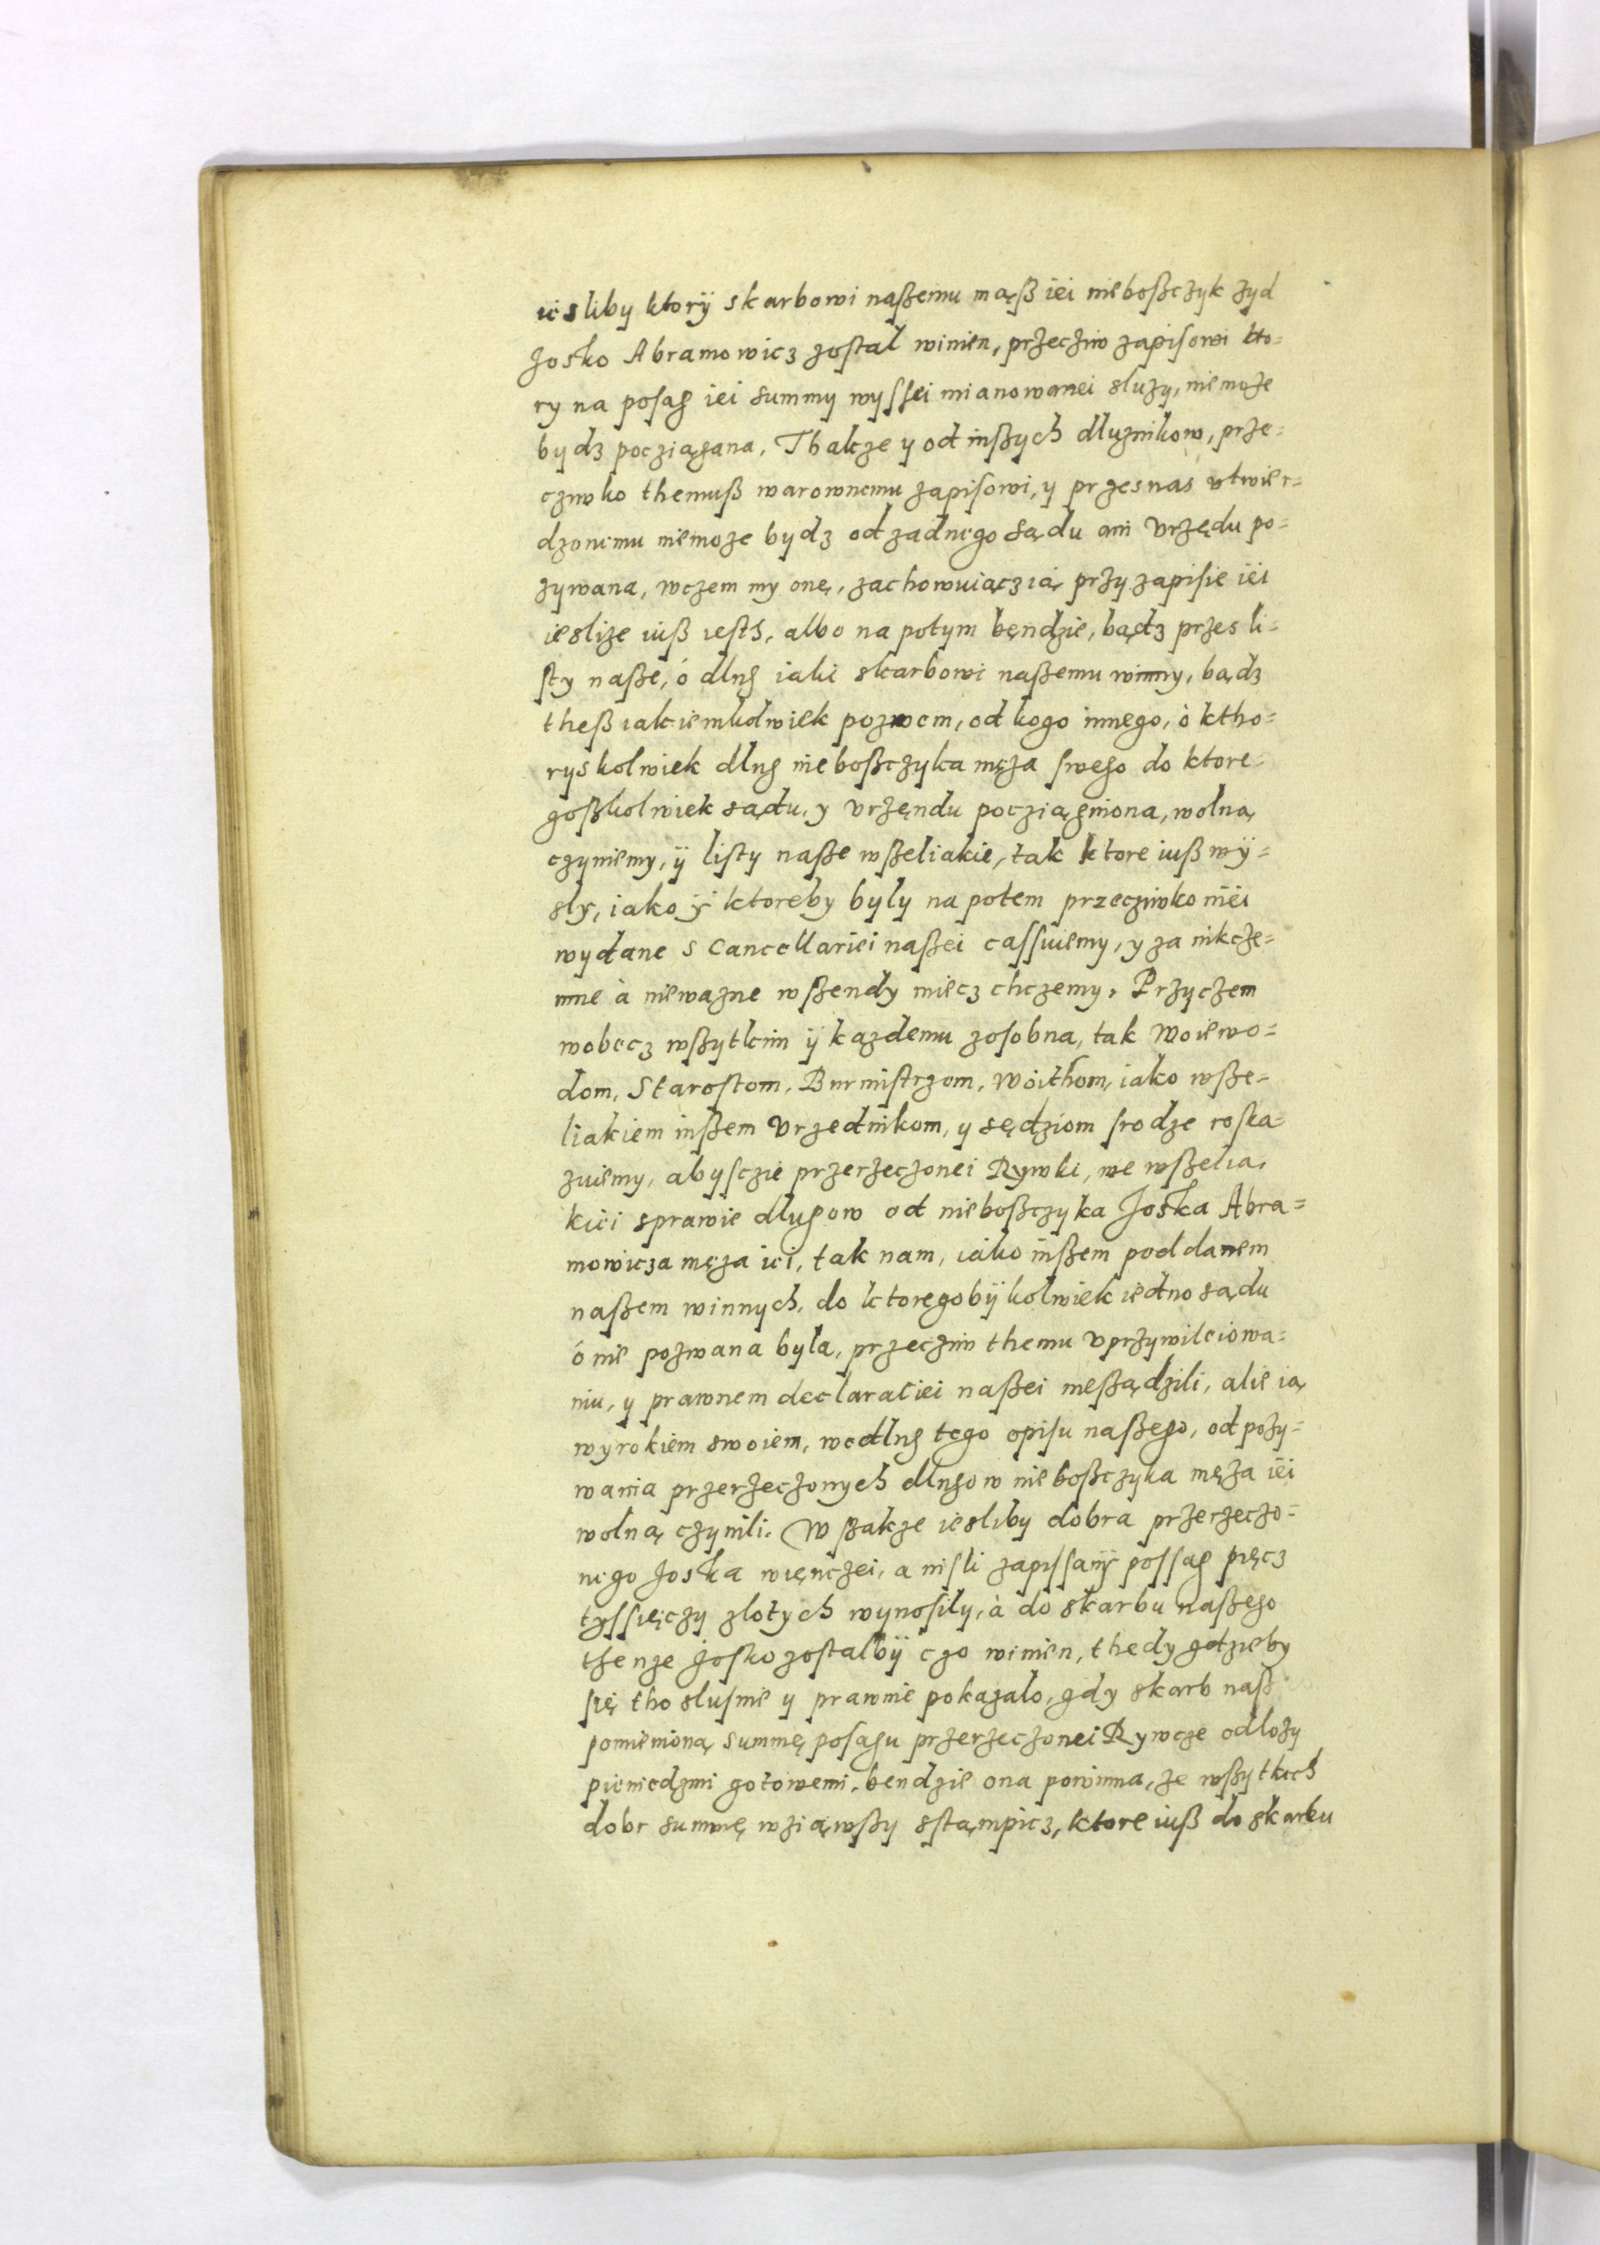 iesliby ktorÿ skarbowi naßemu mąß iei nieboßczyk zyd
Josko Abramowicz zostal winien, przeciw zapisowi kto-
ry na posag iei summy wyssei mianowanei sluzy, niemoze
bydz pocziągana, Thakze y od inßych dluznikow, prze-
czwko themuß warownemu zapisowi, y przesnas vtwier-
dzonemu niemoze bydz od zadnego sądu ani vrzędu po-
zywana, wczem my onę, zachowuiącz ią przy zapisie iei
ieslize iuß iesth, albo na potym będzie, bądz przes li-
sty naße, ó dlug iaki skarbowi naßemu winny, bądz
theß iakiemkolwiek pozwem, od kogo innego, ò ktho-
ryskolwiek dlug nieboßczyka męza swego do ktore-
goßkolwiek sądu, y vrzęndu pocziągniona, wolną
czyniemy, ÿ listy naße wßeliakie, tak ktore iuß wÿ-
sly, iako ÿ ktoreby byly na potem przecziwko niei
wydane s Cancellariei naßei cassuiemy, y za nikcze-
mne à niewazne wßendy miecz chczemy, Przyczem
wobecz wßytkim ÿ kazdemu zosobna, tak Woiewo-
dom, Starostom, Burmistrzom, Woithom, iako wße-
liakiem inßem Vrzednikom, y sędziom srodze roska-
zuiemy, abysczie przerzeczonei Rywki, we wßelia,
kiei sprawie dlugow od nieboßczyka Joska Abra-
mowicza męza iei, tak nam, iako inßem poddanem
naßem winnych, do ktoregobÿ kolwiek iedno sądu
ó nie pozwana byla, przecziw themu vprzywileiowa-
niu, y prawnem declaratiei naßei nießądzili, alie ią
wyrokiem swoiem, wedlug tego opisu naßego, od pozy-
wania przerzeczonych dlugow nieboßczyka męza iei
wolną czynili. Wßakze iesliby dobra przerzeczo-
nego Joska więnczei, a nisli zapissanÿ possag pięcz
tyssięczy zlotych wynosily, à do skarbu naßego
thenze Josko zostalbÿ czo winien, thedy gdzieby
się tho slusnie y prawnie pokazalo, gdy skarb naß
pomienioną summę posagu przerzeczonei Rywcze odlozy
pieniedzmi gotowemi, bendzie ona powinna, ze wßytkich
dobr summę wziąwßy sstąmpicz, ktore iuß do skarbu